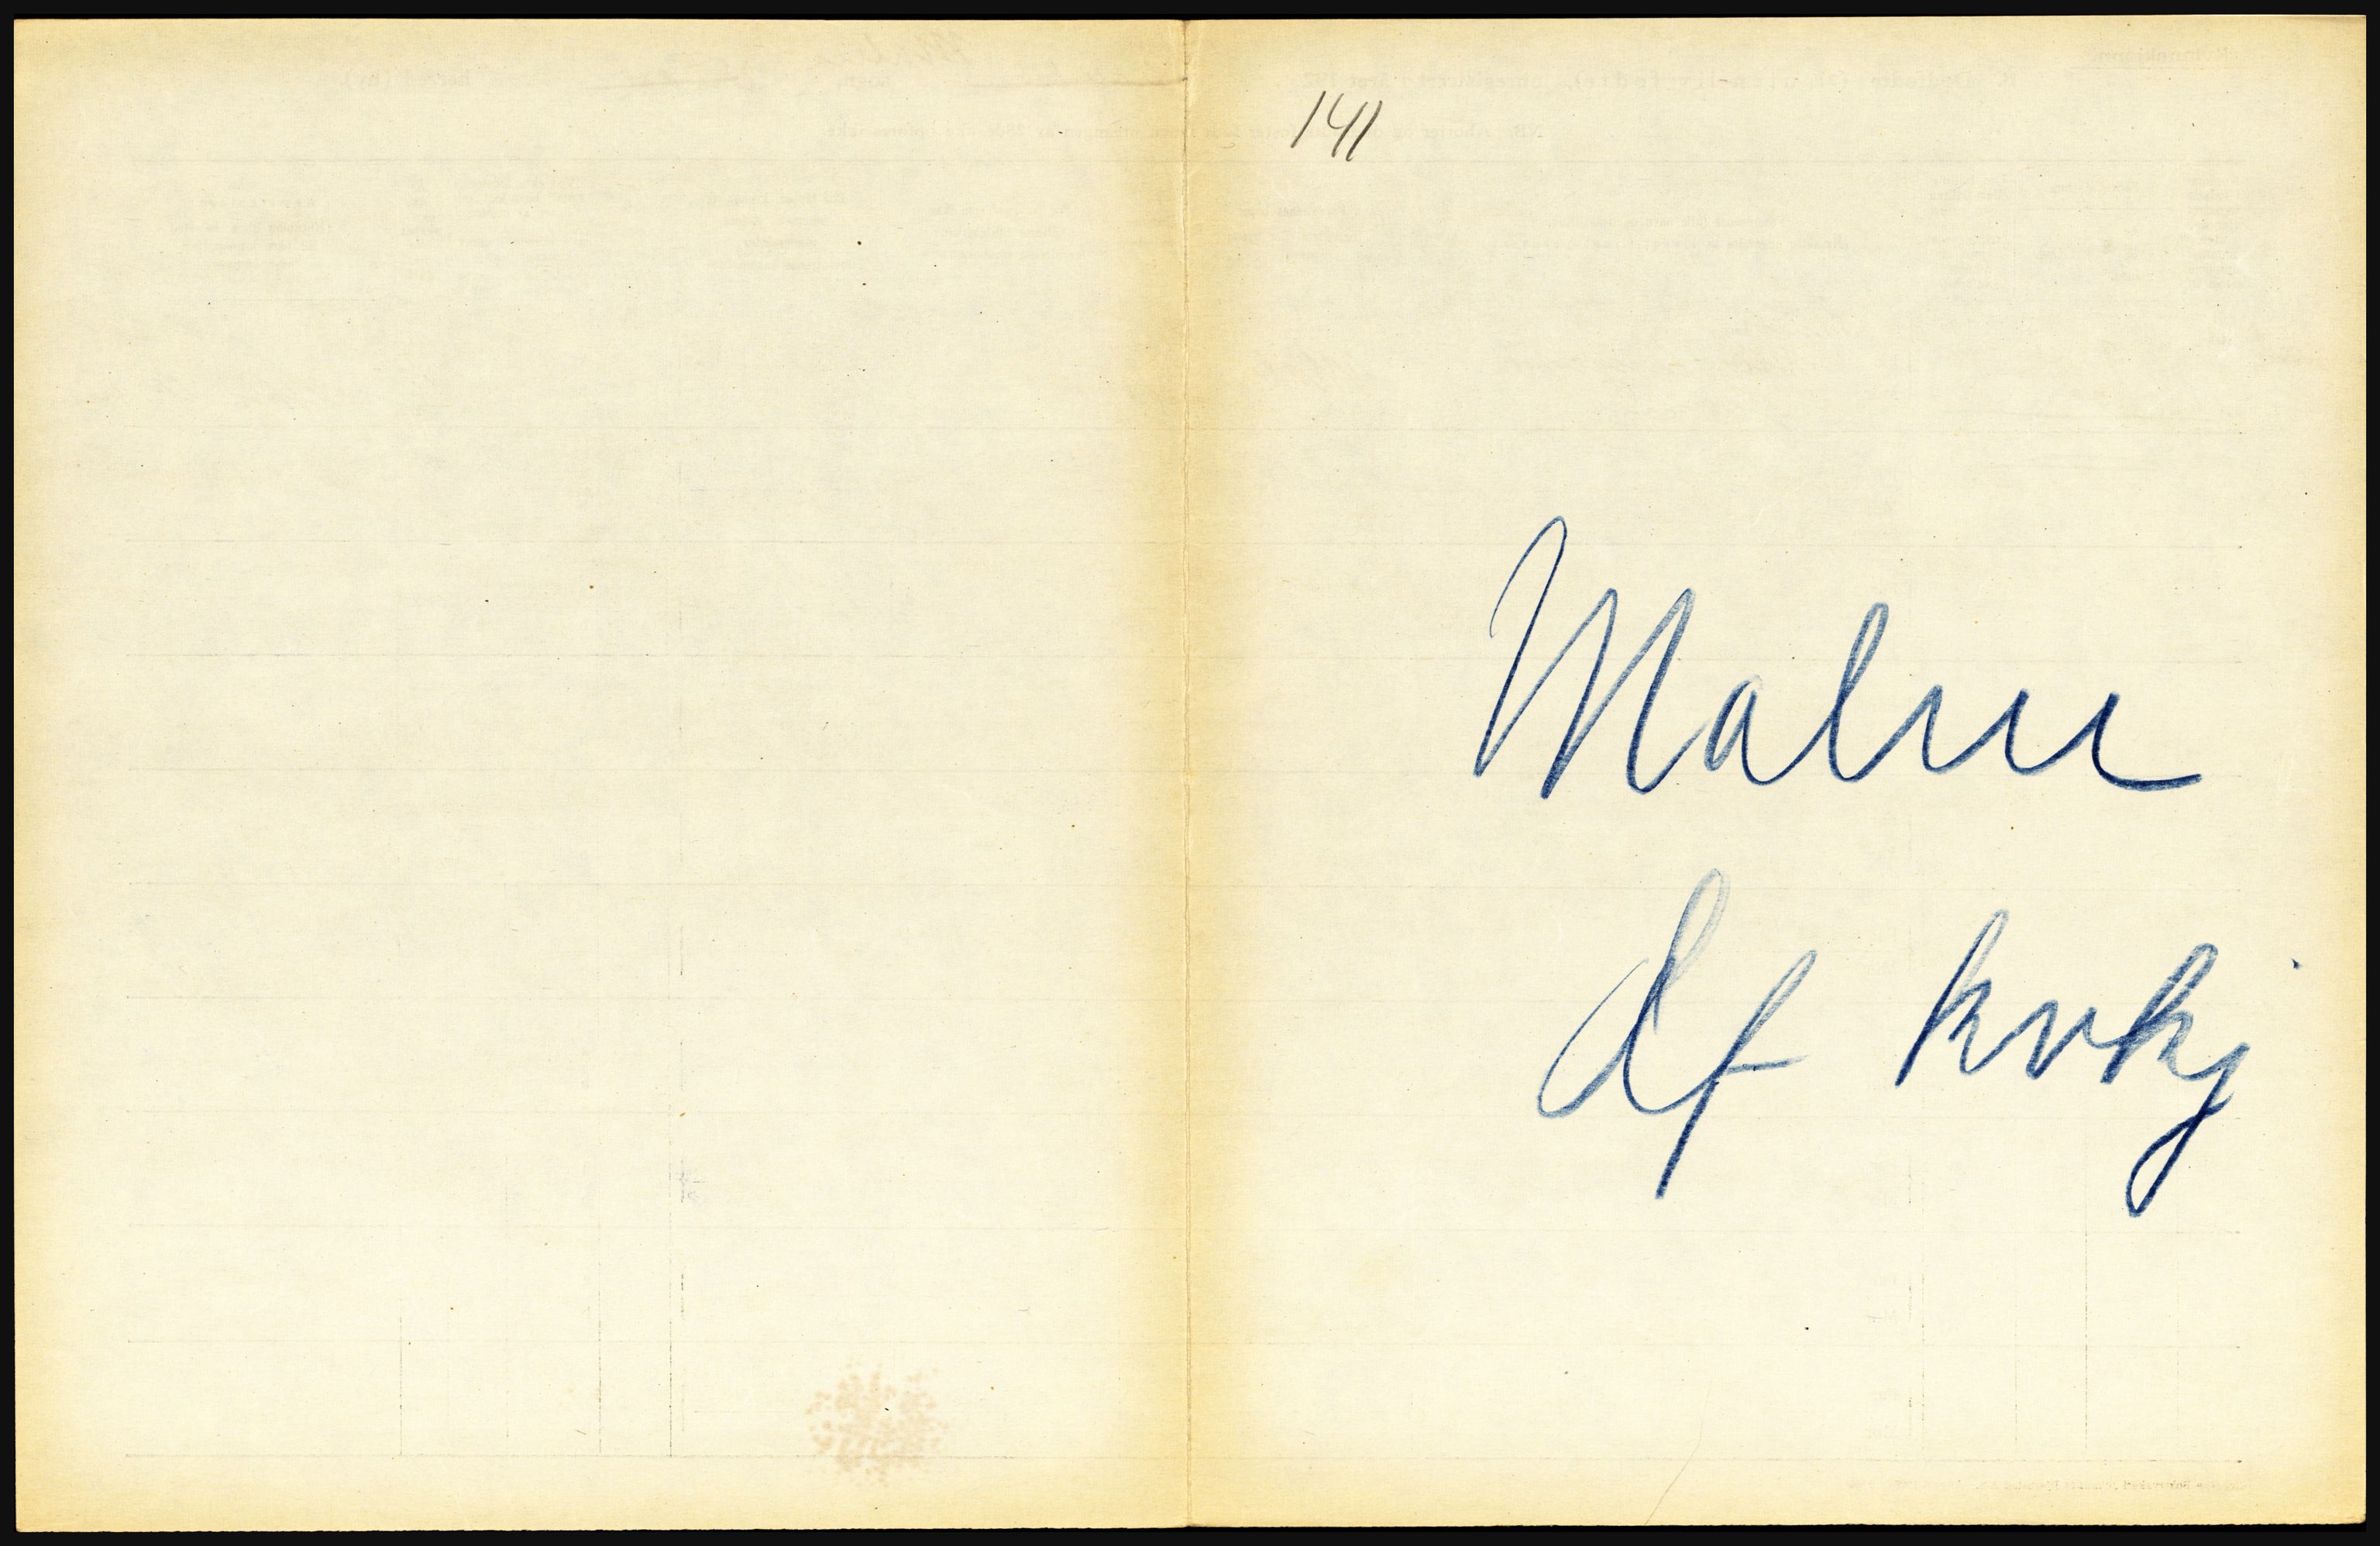 141
Malm
df kvkj